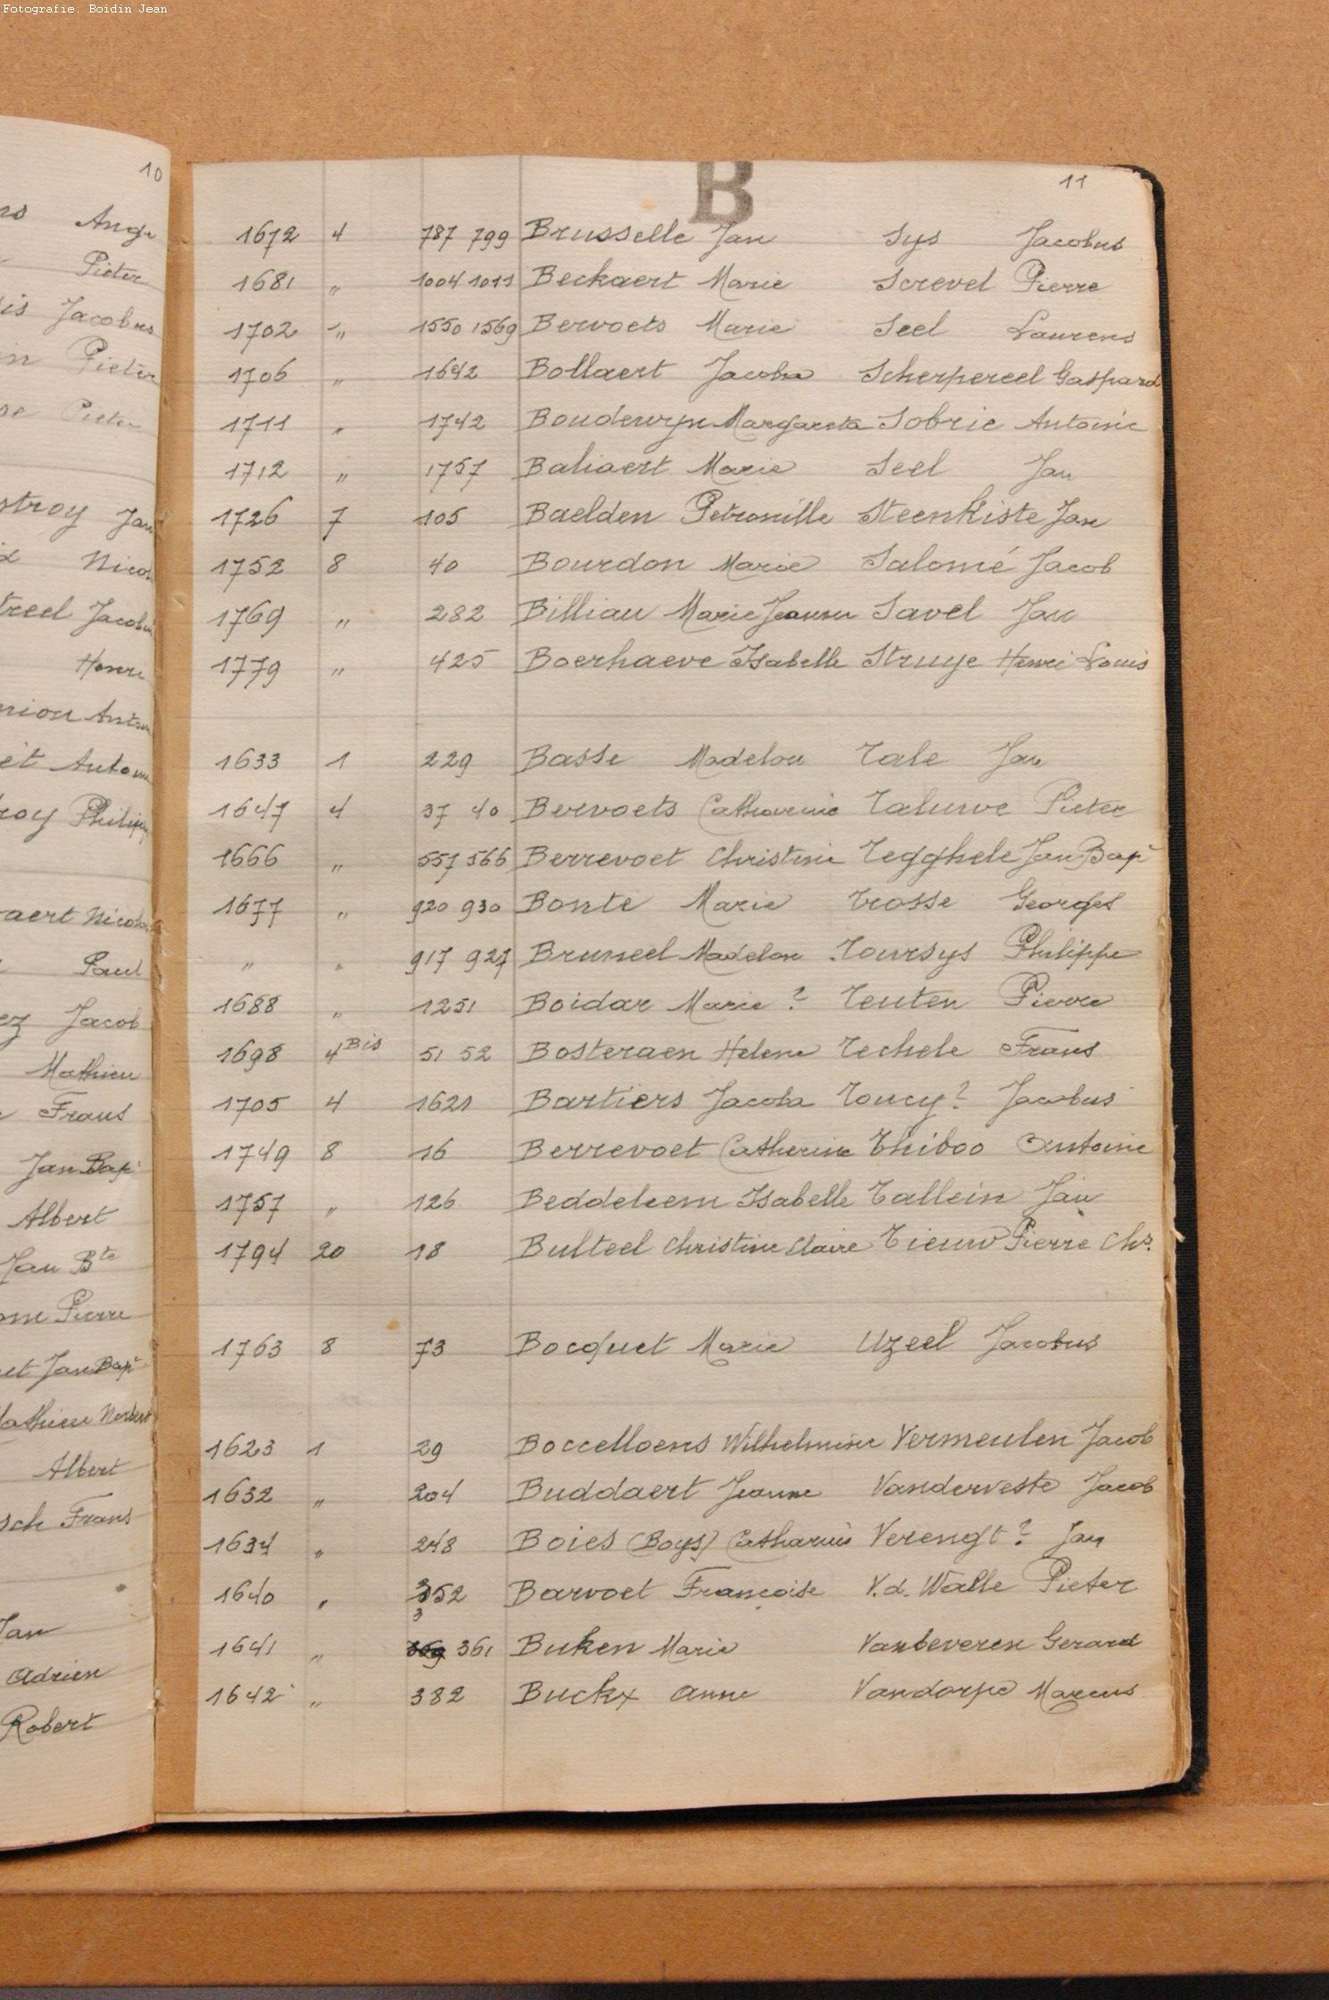 Fotografie. Boidin Jean
10
Ange
Pieter
is Jacobus
n Pieter
se Pieter
stroy Jan
Nicol
treel Jacobu
Henri
nion Anton
et Antoin
roy Philipp
aert Nicolas
Paul
ez Jacob
Mathieu
Frans
Jan Bap
Albert
Jan Bte
Pierre
et Jan Bap
Mathieu Norbert
Albert
sch Frans
Jan
Adrien
Robert
B
11
1672 4 787 799 Brusselle Jan Sys Jacobus
1681 " 1004 1011 Beckaert Marie Screvel Pierre
1702 " 1550 1569 Bervoets Marie Seel Laurens
1706 " 1642 Bollaert Jacoba Scherpereel Gaspard
1711 " 1742 Boudewyn Margareta Sobrie Antoine
1712 " 1757 Baliaert Marie Seel Jan
1726 7 105 Baelden Petronille Steenkiste Jan
1752 8 40 Bourdon Marie Salomé Jacob
1769 " 282 Billiau Marie Jeanne Savel Jan
1779 " 425 Boerhaeve Isabelle Struye Henri Louis
1633 1 229 Basse Madelon Tale Jan
1647 4 37 40 Bervoets Catherine Taluwe Pieter
1666 " 557 566 Berrevoet Christine Tegghele Jan Bap
1677 " 920 930 Bonte Marie Trosse Georges
" " 917 927 Bruneel Madelon Toursys Philippe
1688 " 1251 Boidar Marie ? Teuten Pierre
1698 4 Bis 51 52 Bosteraen Helene Techele Frans
1705 4 1621 Bartiers Jacoba Toucy ? Jacobus
1749 8 16 Berrevoet Catherine Thiboo Antoine
1757 " 126 Beddeleem Isabelle Tallein Jan
1794 20 18 Bulteel Christine Claire Tieuw Pierre Chr.
1763 8 73 Bocquet Marie Uzeel Jacobus
1623 1 29 Boccelloens Wilhelmine Vermeulen Jacob
1632 " 204 Buddaert Jeanne Vanderveste Jacob
1634 " 248 Boies (Boys) Catharine Verengt ? Jan
1640 " 352 Barvoet Françoise V.d. Walle Pieter
3
1641 " 361 Buken Marie Vanbeveren Gerard
1642 " 382 Buckx Anne Vandorpe Marcus